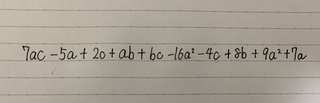 7ac -5a + 2c + ab + bc -16a² -4c + 8b + 9a² + 7a